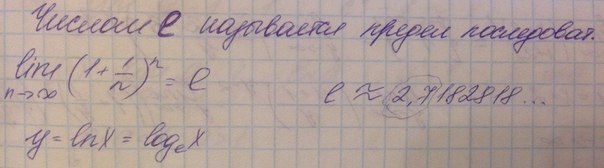 Числом e называется предел последоват.
lim n→∞ (1+1/n)^n = e e ≈ 2,7182818...
y = lnx = logₑx